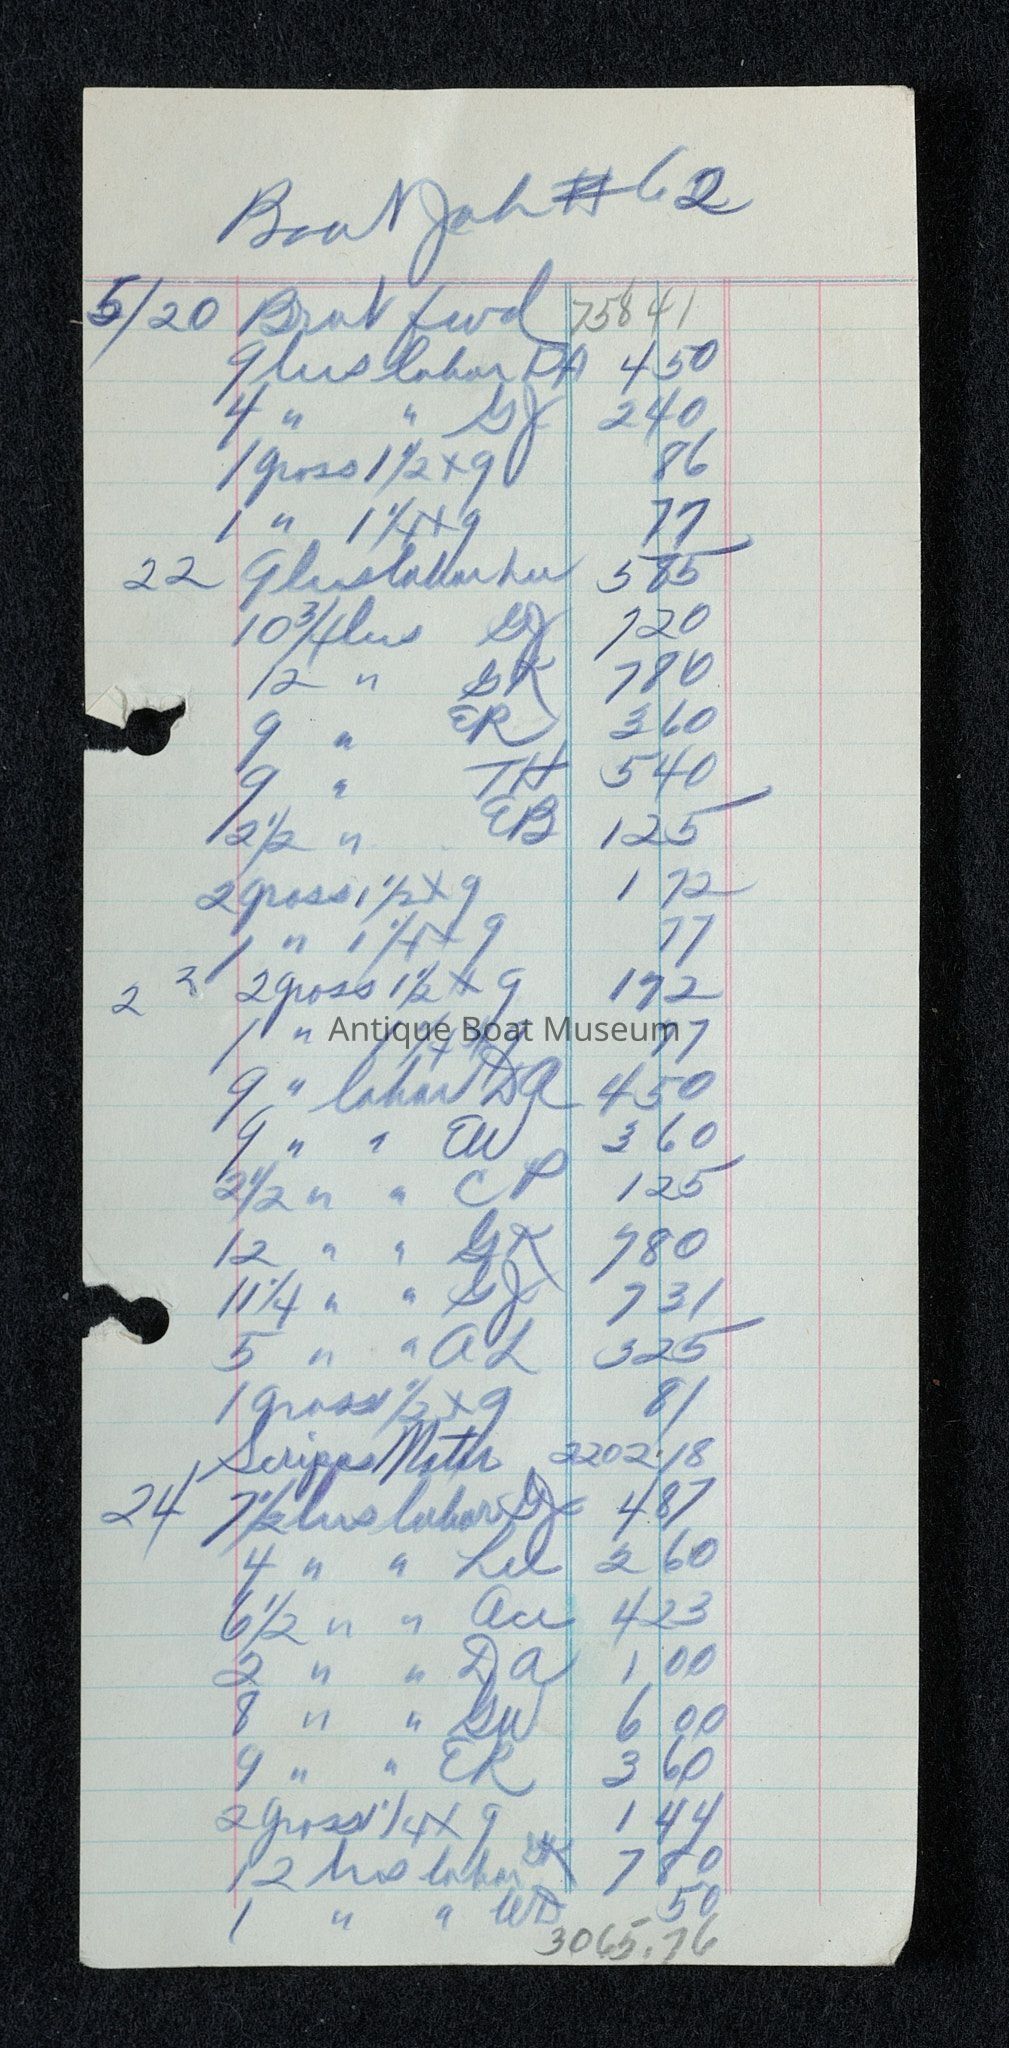 Boat Job #62
5/20 Brot fwd 758 41
9 hrs labor DA 4 50
4 " " GJ 2 40
1 gross 1 1/2 x 9 86
1 " 1 1/4 x 9 77
22 9 hrs labor Lee 5 85
10 3/4 hrs GJ 7 20
12 " GK 7 80
9 " ER 3 60
9 " TH 5 40
2 1/2 " EB 1 25
2 gross 1 1/2 x 9 1 72
1 " 1 1/4 x 9 77
23 2 gross 1 1/2 x 9 1 72
1 " 1 1/4 x 9 77
Antique Boat Museum
9 " labor DA 4 50
9 " " EW 3 60
2 1/2 " " CP 1 25
12 " " GK 7 80
11 1/4 " " GJ 7 31
5 " " AL 3 25
1 gross 1 1/2 x 9 81
Scripps Motor 2202.18
24 7 1/2 hrs labor GJ 4 87
4 " " Lee 2 60
6 1/2 " " Ace 4 23
2 " " DA 1 00
8 " " GW 6 00
9 " " ER 3 60
2 gross 1 1/4 x 9 1 44
12 hrs labor GK 7 80
1 " " WD 50
3065.76